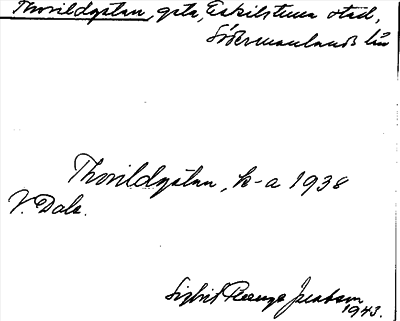 Thorildgatan, gata, Eskilstuna stad,
Södermanlands län
Thorildgatan, k-a 1938
V. Dala.
Sigbrit
1943.